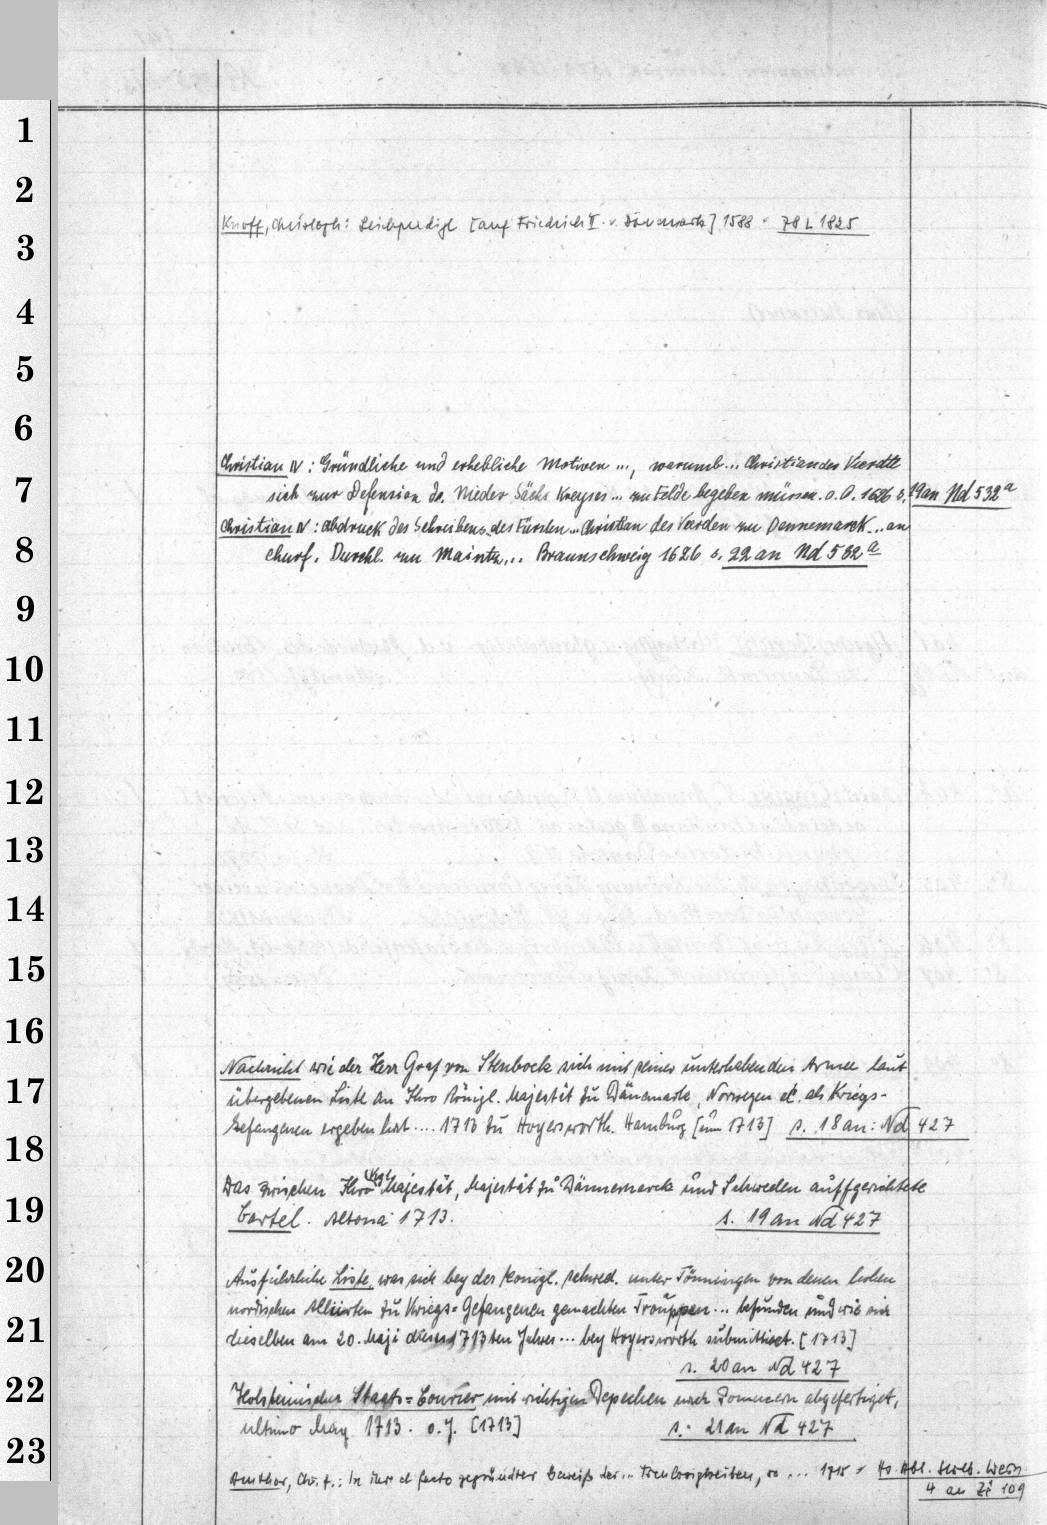 1
2
Knoff, Christoph: Leichpredigt [auf Friedrich II. v. Dänemark] 1588 = 78 L 1825
3
4
5
6
Christian IV: Gründliche und erhebliche Motiven ..., warumb ... Christian des Vierdte
7
sich zur Defension des Nieder Sächs Kreyses ... zu Felde begeben müssen. o.O. 1626 s. 19 an Nd 532ª
Christian IV: Abdruck des Schreibens des Fürsten ... Christian des Vierden zu Dennemarck ... an
8
churf. Durchl. zu Maintz ... Braunschweig 1626 s. 22 an Nd 532ª
9
10
11
12
13
14
15
16
Nachricht wie der Herr Graf von Stenbock sich mit seiner unterhabenden Armee laut
17
übergebenen Liste an Ihro Königl. Majestät zu Dänemark, Norwegen etc. als Kriegs-
Gefangenen ergeben hat .... 1713 zu Hoyerswort. Hamburg [um 1713] s. 18 an: Nd 427
18
Das zwischen Ihro Kgl Majestät, Majestät zu Dännemarck und Schweden auffgerichtete
19
Cartel. Altona 1713. s. 19 an Nd 427
20
Ausführliche Liste, was sich bey der Königl. schwed. unter Tönningen von denen hohen
nordischen Alliirten zu Kriegs=Gefangenen gemachten Trouppen ... befunden und wie sich
21
dieselben am 20. Maji dieses 1713ten Jahres ... bey Hoyersworth submittiret. [1713]
s. 20 an Nd 427
22
Holsteinischer Staats=Courier mit richtigen Depechen nach Pommern abgefertiget,
ultimo May 1713. o.J. [1713] s. 21 an Nd 427
23
Amthor, Chr. H.: In jure et facto gegründter Beweiß der ... Treulosigkeiten, so ... 1715 =
4 an Zi 109